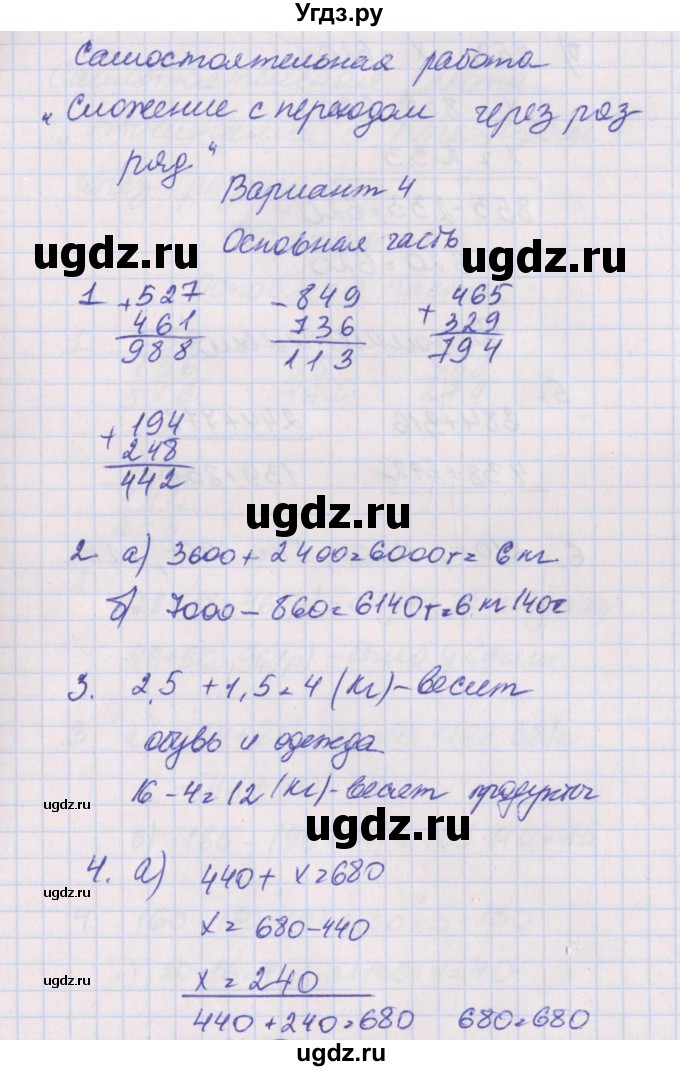 Угдз.ру
Самостоятельная работа
"Сложение с переходом через раз
ряд"
Вариант 4
Основная часть
ugdz.ru ugdz.ru
1 +527 -849 +465
461 736 329
988 113 794
+194
248
442
ugdz.ru
2 а) 3600 + 2400 = 6000г = 6 кг
б) 7000 - 860 = 6140г = 6 кг 140г
3. 2,5 + 1,5 = 4 (кг) - весит
обувь и одежда
ugdz.ru
16 - 4 = 12 (кг) - весят продукты
ugdz.ru
4. а) 440 + x = 680
ugdz.ru
x = 680 - 440
ugdz.ru
x = 240
440 + 240 = 680 680 = 680
ugdz.ru